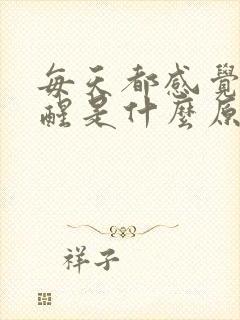 每天都感覺
醒是什麼原
祥子